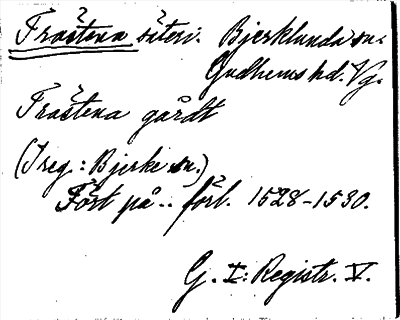 Fråstena säteri. Bjerklunda sn.
Gudhems hd. Vg.
Fråstena gårdt
(I reg.: Bjerke sn.)
Fört på .. förl. 1528-1530.
G. I: Registr. V.